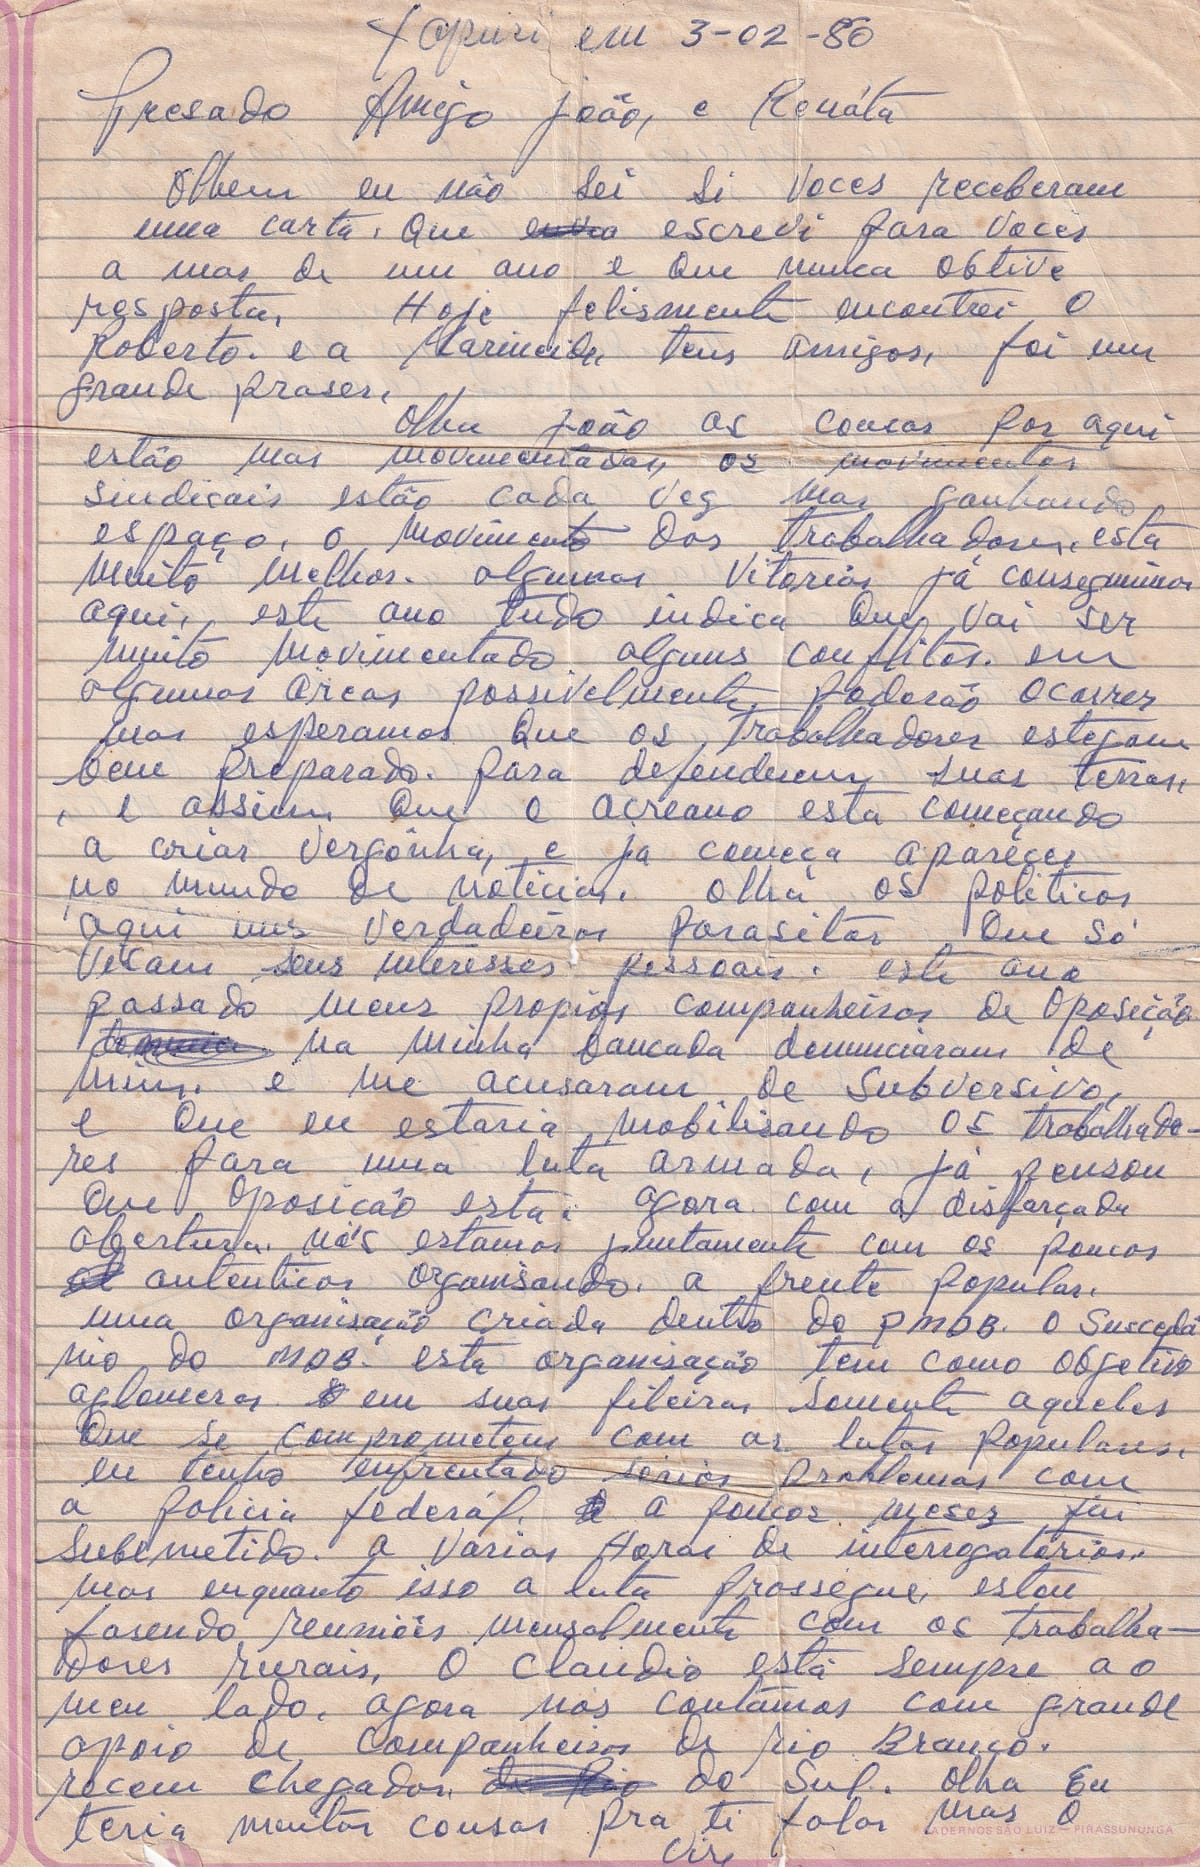 Xapuri em 3-02-80
Presado Amigo João, e Renáta
Olhem eu não sei si voces receberam
uma carta. que escrevi para voces
a mas de um ano e que nunca obtive
resposta, Hoje felismente encontrei o
Roberto. e a Marineide, teus amigos, foi um
grande praser,
Olha João as cousas por aqui
estão mas movimentadas, os movimentos
sindicais estão cada veg mas ganhando
espaço, o movimento dos trabalhadores, esta
muito melhor. algumas vitorias já conseguimos
aqui, este ano tudo indica que vai ser
muito movimentado alguns conflitos. em
algumas areas possivelmente poderão ocorrer
mas esperamos que os trabalhadores estegam
bem preparado. para defenderem suas terras,
, e assim que o acreano esta começando
a criar vergônha, e ja começa aparecer
no mundo de noticias. olha os politicos
aqui uns verdadeiros parasitas que só
visam seus interesses pessoais. este ano
passado meus propios companheiros de oposição
na minha bancada denunciaram de
mim. e me acusaram de subversivo,
e que eu estaria mobilisando os trabalhado-
res para uma luta armada, já pensou
que oposição esta: agora com a disfarçada
abertura. nós estamos juntamente com os poucos
autenticos organisando. a frente popular.
uma organisação criada dentro do PMDB. o Sucedâ
nio do MDB. esta organisação tem como obgetivo
aglomerar em suas fileiras somente aqueles
que se comprometem com as lutas populares,
eu tenho enfrentado serios problemas com
a policia federál. a poucos meses fui
submetido. a varias Horas de interrogatorios.
mas enquanto isso a luta prossegue, estou
fasendo reuniões mensalmente com os trabalha-
dores rurais, O Claudio está sempre ao
meu lado. agora nós contamos com grande
apoio de companheiros de rio Branco.
recem chegados do Sul. olha Eu
teria muitas cousas pra ti falar mas o
CADERNOS SÃO LUIZ — PIRASSUNUNGA
Vire